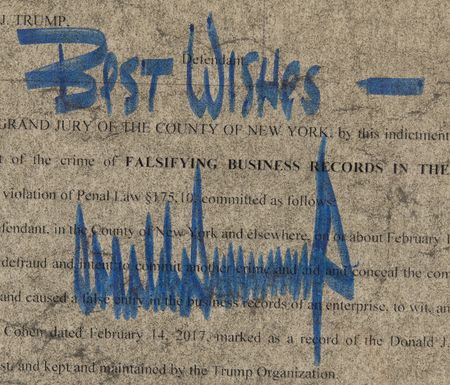 J. TRUMP,
Defendant
BEST WISHES —
GRAND JURY OF THE COUNTY OF NEW YORK, by this indictment
of the crime of FALSIFYING BUSINESS RECORDS IN THE
violation of Penal Law §175.10, committed as follows:
fendant, in the County of New York and elsewhere, on or about February 1
defraud and intent to commit another crime and aid and conceal the com
and caused a false entry in the business records of an enterprise, to wit, an
Cohen dated February 14, 2017, marked as a record of the Donald J.
st, and kept and maintained by the Trump Organization